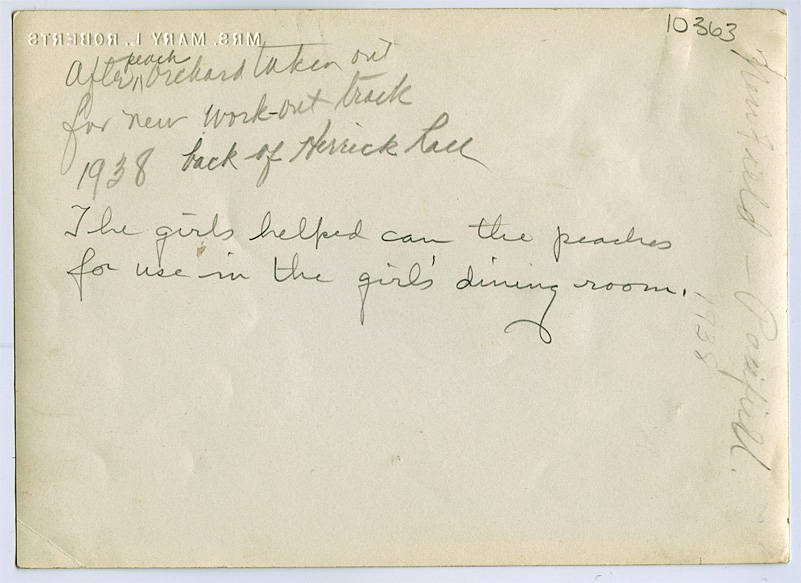 MRS. MARY L. ROBERTS
10363
After peach orchard taken out
for new work-out track
1938 back of Herrick Hall
The girls helped can the peaches
for use in the girls' dining room.
1938